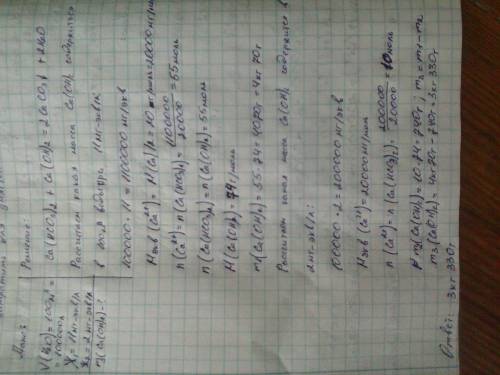 Дано:
V(H2O) = 100м³ =
= 100000л
X1 = 11мг-экв/л
X2 = 2 мг-экв/л
m(Ca(OH)2) - ?
Решение:
Ca(HCO3)2 + Ca(OH)2 = 2CaCO3↓ + 2H2O
Рассчитаем какая масса Ca(OH)2 содержится
в воде 11мг-экв/л
100000 · 11 = 1100000 мг/экв
n(Ca²⁺) = n(Ca(HCO3)2) = 1100000/20000 = 55 моль
n(Ca(HCO3)2) = n(Ca(OH)2) = 55 моль
M(Ca(OH)2) = 74 г/моль
m1(Ca(OH)2) = 55 · 74 = 4070г = 4кг 70г
Рассчитаем какая масса Ca(OH)2 содержится в
2мг-экв/л
100000 · 2 = 200000 мг/экв
Mэкв(Ca²⁺) = 20000мг/моль
n(Ca²⁺) = n(Ca(HCO3)2) = 200000/20000 = 10 моль
m2(Ca(OH)2) = 10 · 74 = 740г, m3 = m1 - m2
m3(Ca(OH)2) = 4кг 70г - 740г = 3кг 330г
Ответ: 3кг 330г